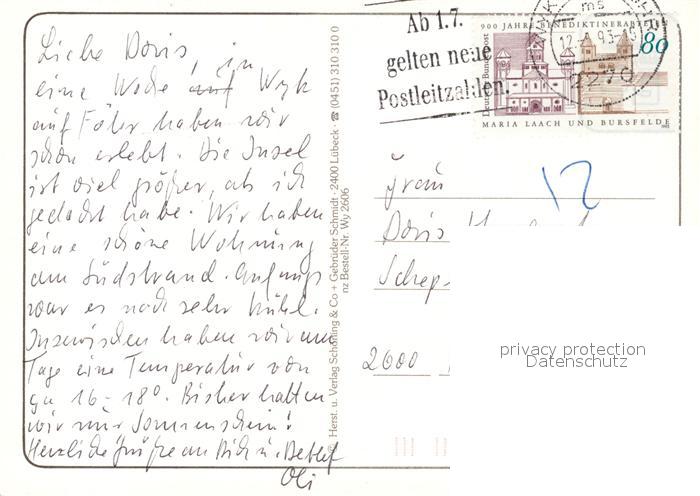 Liebe Doris, in
eine Woche auf Wyk
auf Föhr haben wir
schon erlebt. Die Insel
ist viel größer, als ich
gedacht habe. Wir haben
eine schöne Wohnung
am Südstrand. Anfangs
war es noch sehr kühl.
Inzwischen haben wir am
Tage eine Temperatur von
16-18°. Bisher hatten
wir nur Sonnenschein!
Herzliche Grüße an Dich u. Detlef
Herst. u. Verlag Schöning & Co + Gebrüder Schmidt · 2400 Lübeck · ☎ (0451) 310 310 0
nz Bestell-Nr. Wy 2606
Ab 1.7.
gelten neue
Postleitzahlen.
12.-4.93-15
2270
900 JAHRE BENEDIKTINERABTEIEN
80
Deutsche Bundespost
MARIA LAACH UND BURSFELDE
Frau
12
Doris
2600
privacy protection
Datenschutz